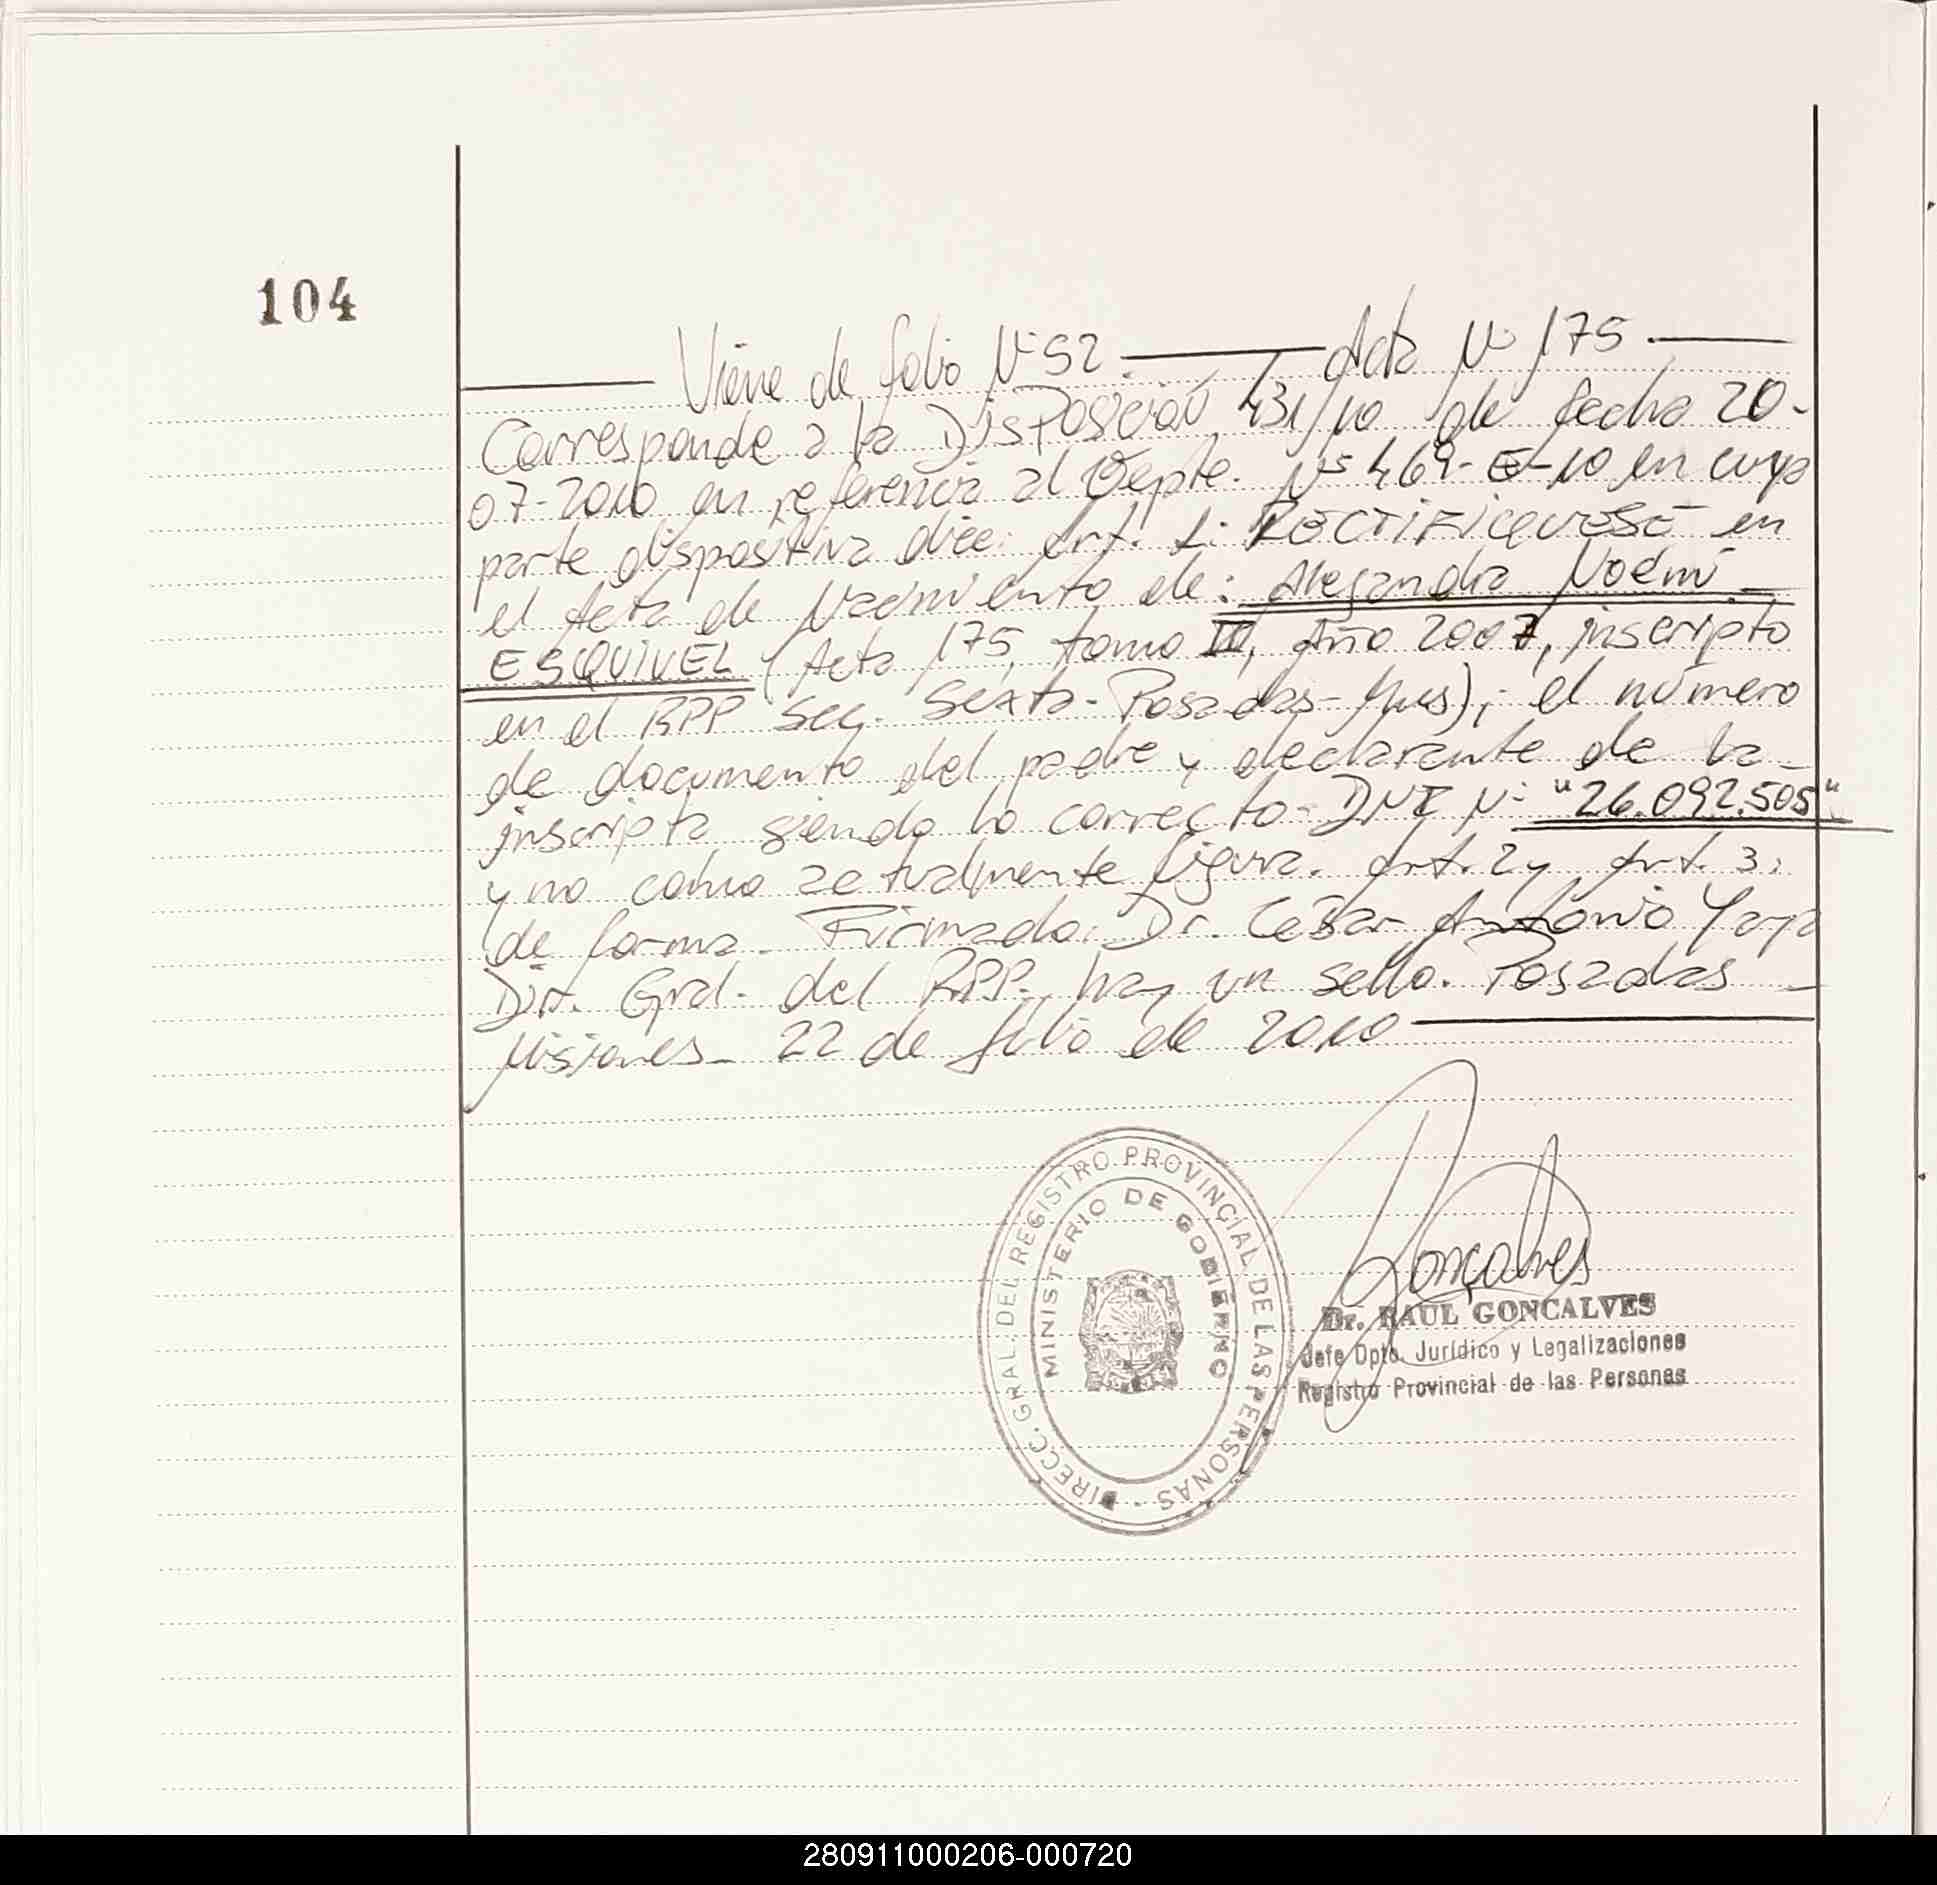 104
Viene de folio Nº 52. Acta Nº 175.
Corresponde a la Disposición 431/10 de fecha 20-
07-2010 en referencia al Expte. Nº 469-E-10 en cuya
parte dispositiva dice: Art. 1: RECTIFIQUESE en
el Acta de Nacimiento de: Alejandra Noemí
ESQUIVEL (Acta 175, tomo III, Año 2007, inscripto
en el RPP Sec. Sexta-Posadas-Mnes); el número
de documento del padre y declarante de la
inscripta siendo lo correcto-DNI Nº "26.092.505"
y no como actualmente figura. Art. 2 y Art. 3:
de forma. Firmado: Dr. César Antonio Yaya
Dir. Gral. del RPP. hay un sello. Posadas
Misiones-22 de Julio de 2010
DIRECC. GRAL. DEL REGISTRO PROVINCIAL DE LAS PERSONAS -
MINISTERIO DE GOBIERNO
Gonçalves
Dr. RAUL GONCALVES
Jefe Dpto. Jurídico y Legalizaciones
Registro Provincial de las Personas
280911000206-000720